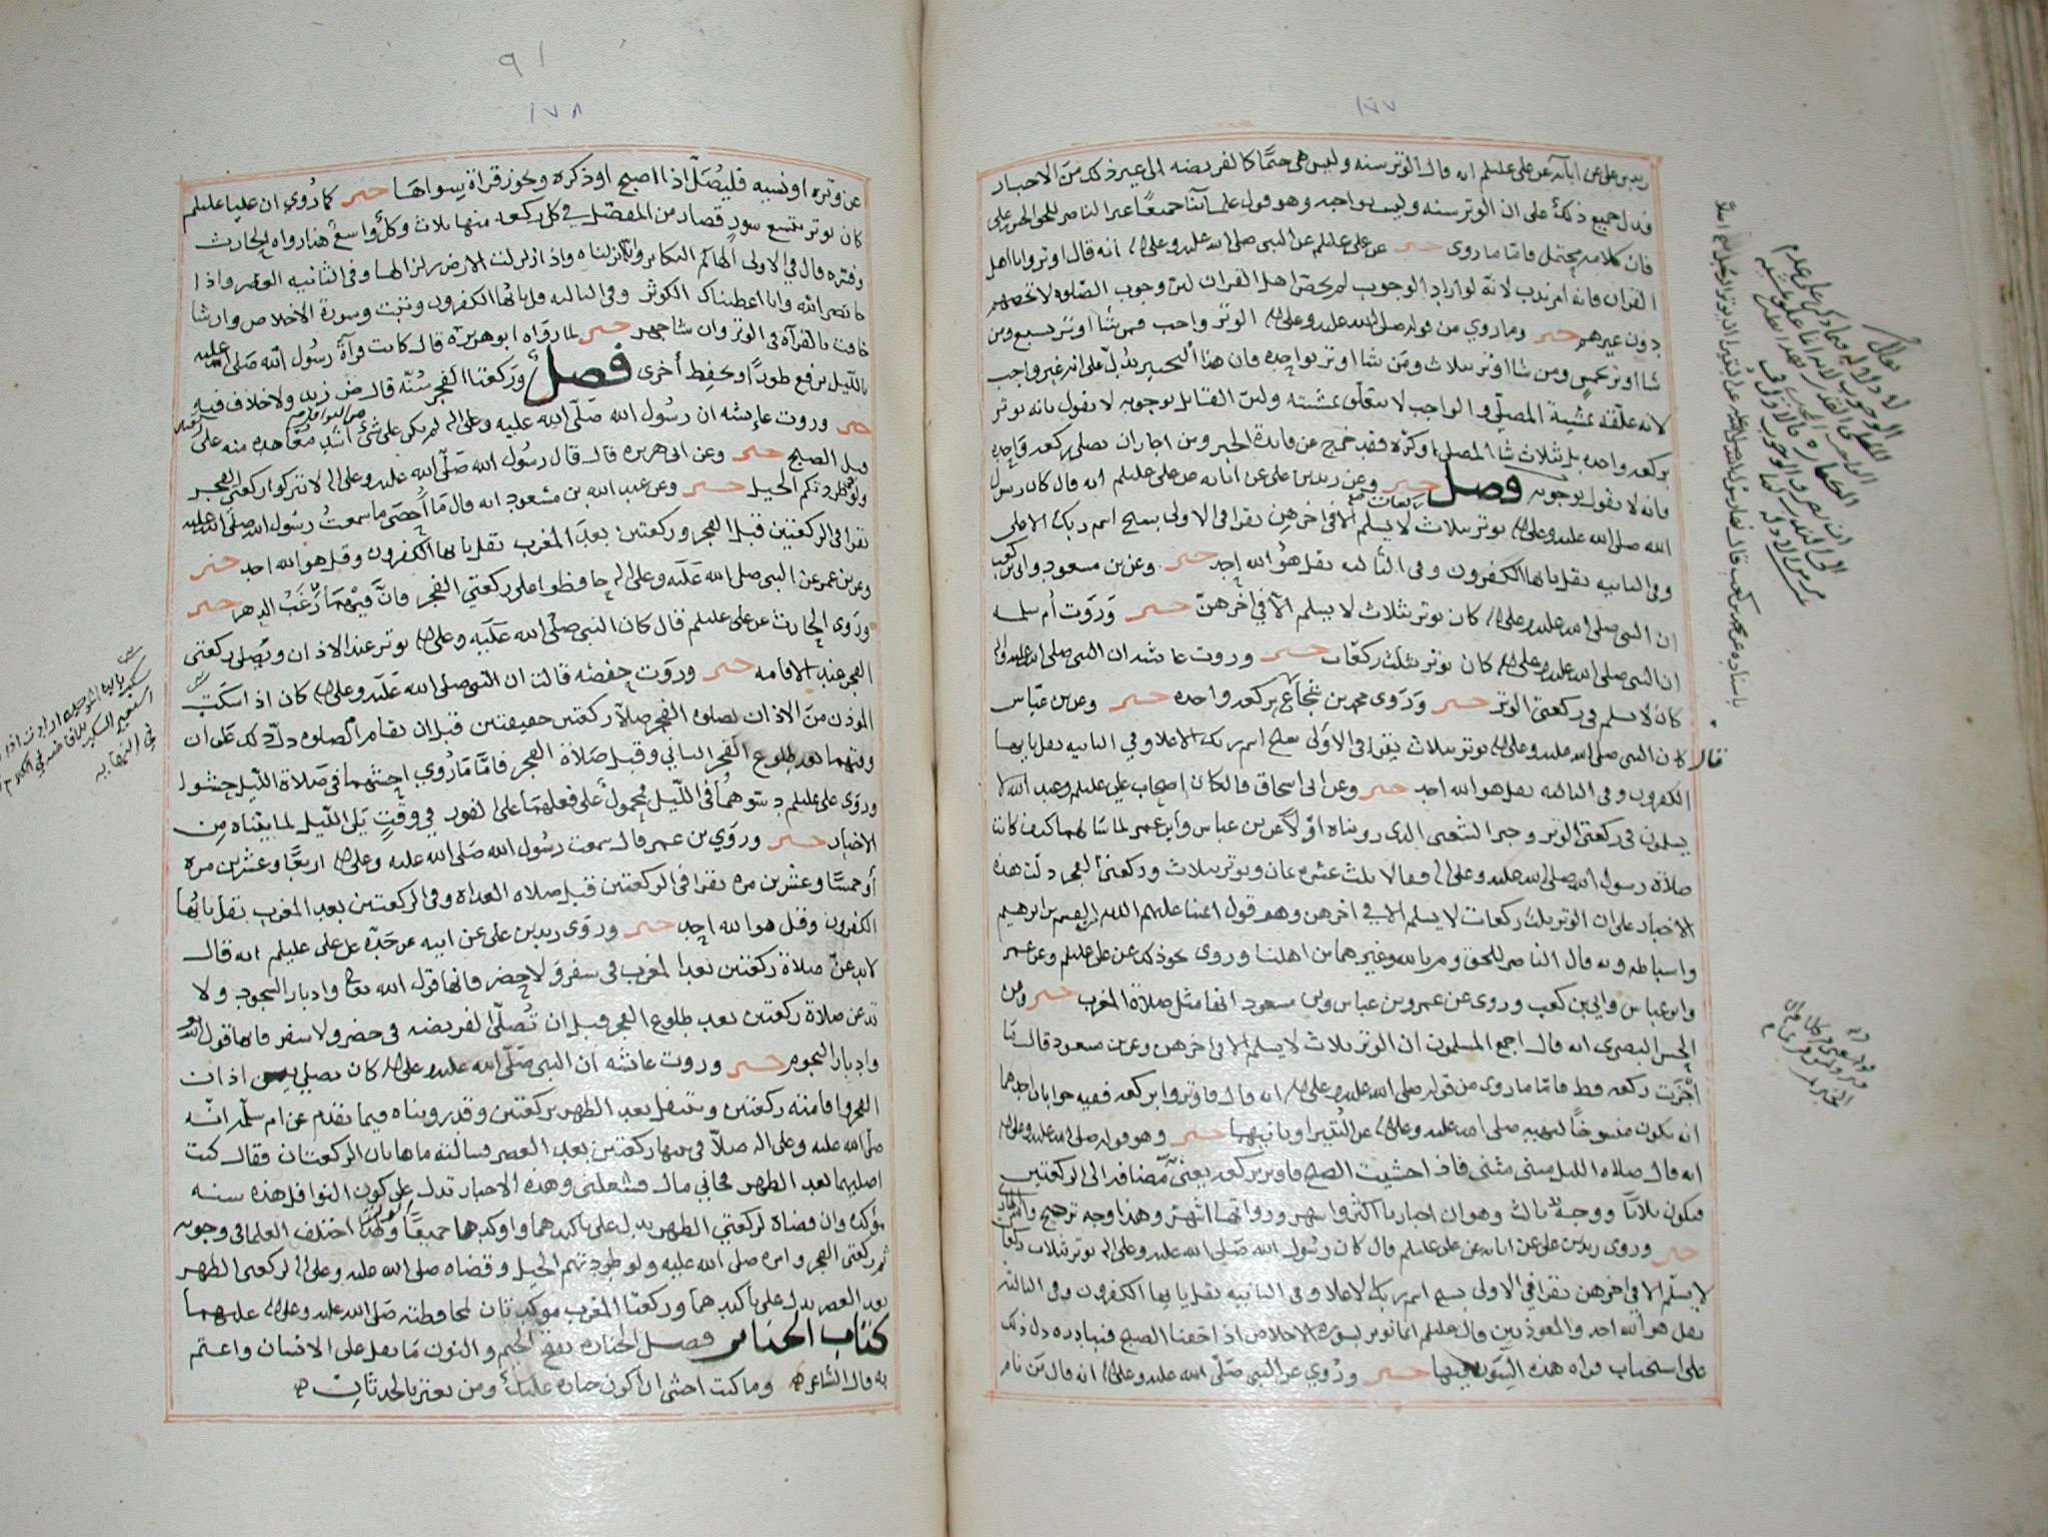 ١٧٧
زيد بن على عن ابآئه عن على عليلم انه قال الوتر سنه وليس هى حتمًا كالفريضه الى غير ذلك من الاخبار
فدل جميع ذلك على ان الوتر سنه وليس بواجبه وهو قول علمآئنا جميعًا غير الناصر للحق الحسن بن على
فان كلامه يحتمل فامّا ما روى خبر عن على عليلم عن النبى صلى الله عليه وعلى اله انه قال اوتروا يا اهل
القرآن فانه امر ندب لانه لو اراد الوجوب لم يخص اهل القران لان وجوب الصّلوة لا تخصهم
دون غيرهم خبر وما روي من قوله صلى الله عليه وعلى اله الوتر واجب فمن شا اوتر بسبع ومن
شا اوتر بخمس ومن شا اوتر بثلاث ومن شا اوتر بواحده فان هذا التخيير يدل على انه غير واجب
لانه علّقه بمشية المصلي والواجب لا يتعلّق بمشيته ولان القائل بوجوبه لا يقول بانه يوتر
بركعه واحده بل بثلاث شا المصلى او كره فقد خرج عن فايدة الخبر ومن اجاز ان تصلى ركعه واحده
فانه لا يقول بوجوبه فصل خبر وعن زيد بن على عن ابائه عن على عليلم انه قال كان رسول
الله صلى الله عليه وعلى اله يوتر بثلاث ركعات لا يسلم الا فى اخرهن يقرا فى الاولى بسبح اسم ربك الاعلى
وفى الثانيه بقل يا ايها الكفرون وفى الثالثه بقل هو الله احد خبر وعن بن مسعود وابى بن كعب
ان النبى صلى الله عليه وعلى اله كان يوتر بثلاث لا يسلم الا في اخرهن خبر وروت ام سلمه
ان النبى صلى الله عليه وعلى اله كان يوتر بثلث ركعات خبر وروت عائشه ان النبى صلى الله عليه واله
كان لا يسلم فى ركعتى الوتر خبر وروى محمد بن شجاع بركعه واحده خبر وعن بن عباس
قال كان النبى صلى الله عليه وعلى اله يوتر بثلاث يقرا فى الاولى بسبح اسم ربك الاعلا وفي الثانيه بقل يا ايها
الكفرون وفى الثالثه بقل هو الله احد خبر وعن ابى اسحاق قال كان اصحاب على عليلم وعبد الله لا
يسلمون فى ركعتى الوتر وخبر الشعبى الذى رويناه اولًا عن بن عباس وابن عمر لما سالهما كيف كانت
صلاة رسول الله صلى الله عليه وعلى اله فقالا ثلث عشره ثمان ويوتر بثلاث وركعتى الفجر دلت هذه
الاخبار على ان الوتر ثلث ركعات لا يسلم الا في اخرهن وهو قول ائمتنا عليهم السلم القسم بن ابرهيم
واسباطه وبه قال الناصر للحق وزيد بن على وغيرهما من اهلنا وروى نحو ذلك عن على عليلم وعن عمر
وابن عباس وابي بن كعب وروى عن عمر وبن عباس وبن مسعود انها مثل صلاة المغرب خبر وعن
الحسن البصرى انه قال اجمع المسلمون ان الوتر ثلاث لا يسلم الا فى اخرهن وعن بن مسعود قال ما
اجزت ركعه قط فامّا ما روى من قوله صلى الله عليه وعلى اله انه قال فاوتروا بركعه ففيه جوابان احدهما
انه يكون منسوخًا لنهيه صلى الله عليه وعلى اله عن البتيرا وثانيهما خبر وهو قوله صلى الله عليه وعلى اله
انه قال صلاه الليل مثنى مثنى فاذا خشيت الصبح فاوتر بركعه يعنى مضافه الى الركعتين
فيكون ثلاثا ووجه ثالث وهو ان اخبارنا اكثر واشهر ورواتها اشهر وهذا وجه ترجيح
خبر وروى زيد بن على عن ابائه عن على عليلم قال كان رسول الله صلى الله عليه وعلى اله يوتر بثلاث ركعات
لا يسلّم الا فى اخرهن يقرا في الاولى بسبح اسم ربك الاعلا وفى الثانيه بقل يا ايها الكفرون وفى الثالثه
بقل هو الله احد والمعوذتين وقال عليلم انما نوتر بسورة الاخلاص اذا خفنا الصبح فنبادره دل ذلك
على استحباب قراة هذه السّور فيها خبر ورُوي عن النبى صلى الله عليه وعلى اله انه قال من نام
٩١
١٧٨
عن وتره او نسيه فليُصَلّ اذا اصبح او ذكره ويجوز قراة سواها خبر كما رُوي ان عليا عليلم
كان يوتر بتسع سورٍ قصار من المفصّل في كل ركعه منها ثلاث وكلٌ واسعٌ هذا رواه الحارث
وفسّره قال في الاولى الهاكم التكاثر وانا انزلناه واذا زلزلت الارض زلزالها وفى الثانيه العصر واذا
جا نصر الله وانا اعطيناك الكوثر وفى الثالثه قل يا ايها الكفرون وتبت وسورة الاخلاص وان شا
خافت بالقرآة فى الوتر وان شا جهر خبر لما رواه ابو هريرة قال كانت قرآة رسول الله صلى الله عليه
بالليل يرفع طورًا ويخفِض أخرى فصل وركعتا الفجر سُنّه قال صن زيد ولا خلاف فيه
خبر وروت عايشه ان رسُول الله صَلّى الله عليه وعلى اله لم يكن على شئ من النوافل اشد معاهده منه على ركعتين
قبل الصبح خبر وعن ابى هريره قال قال رسُول الله صَلّى الله عليه وعلى اله لا تتركوا ركعتى الفجر
ولو طردتكم الخيل خبر وعن عبد الله بن مسعود انه قال مَا أحصَى ما سمعت رسُول الله صلى الله عليه
يقرا فى الركعتين قبل الفجر وركعتين بعد المغرب بقل يا ايها الكفرون وقل هو الله احد خبر
وعن بن عمر عن النبى صلى الله عَليه وعلى اله حافظوا على ركعتى الفجر فان فيهما رغَبُ الدهر خبر
وروى الحارث عن على عليلم قال كان النبى صلى الله عَليه وعلى اله يوتر عند الاذان ويصلى ركعتى
الفجر عند الاقامه خبر وروَت حفصَه قالت ان النّبى صلى الله عَليه وعلى اله كان اذا سكت
الموذن منَ الاذان لصلوه الفجر صلّا ركعتين خفيفتين قبل ان تقام الصّلوه دلّ ذلك على ان
وقتهما بعد طلوع الفجر الثاني وقبل صَلاة الفجر فامّا مَا رُوي احشهما فى صَلاة الليل حشوا
وروى على عليلم دسّوهُما فى اللّيل محمولٌ على فعلهما على الفور في وقتٍ يَلى الليل لما بيّناه من
الاخبار خبر وروي بن عمر قال سمعت رسُول الله صَلى الله عليه وعلى اله اربعًا وعشرين مره
أو خمسًا وعشرين مره يقرا فى الركعتين قبل صلاه الغداة وفى الركعتين بعد المغرب بقل يا ايُّها
الكفرون وقل هو الله احد خبر وروى زيد بن على عن ابيه عن جَدّه عن على عليلم انه قال
لا تدعن صلاة ركعتين بعد المغرب في سفرٍ ولا حضر فانها قول الله تعالى وادبار السجود ولا
تدعن صلاة ركعتين بعد طلوع الفجر قبل ان تُصلّى الفريضه فى حضر ولا سفر فانها قول الله تعالى
وادبار النجوم خبر وروت عائشه ان النبى صَلّى الله عليه وعلى اله كان يصلى بين اذان
الفجر واقامته ركعتين ويتنفل بعد الظهر بركعتين وقد روينا فيما تقدم عن ام سلمه انّه
صلّى الله عليه وعلى اله صلاّ فى بيتها ركعتين بعد العصر فسالته ما هاتان الركعتان فقال كنت
اصليهما بعد الظهر فجاني مال فشغلنى وهذه الاخبار تدل على كون النوافل هذه سنه
مؤكده وان قضاه لركعتي الظهر يدل على تاكيدهما واوكدهما جميعًا ولهذا اختلف العلما فى وجوبه
ثم ركعتى الفجر وامره صلى الله عليه ولو طردتهم الخيل وقضاه صلى الله عليه وعلى اله لركعتى الظهر
بعد العصر يدل على تاكيدهما وركعتا المغرب موكدتان لمحافظته صَلى الله عليه وعلى اله عليهما
كتاب الجنائز فصل الجنازه بفتح الجيم والنون مَا يقل على الانسان واغتم
به قال الشاعر وما كنت اخشى ان اكون جنازة عليك ومن يغتر بالحدثان